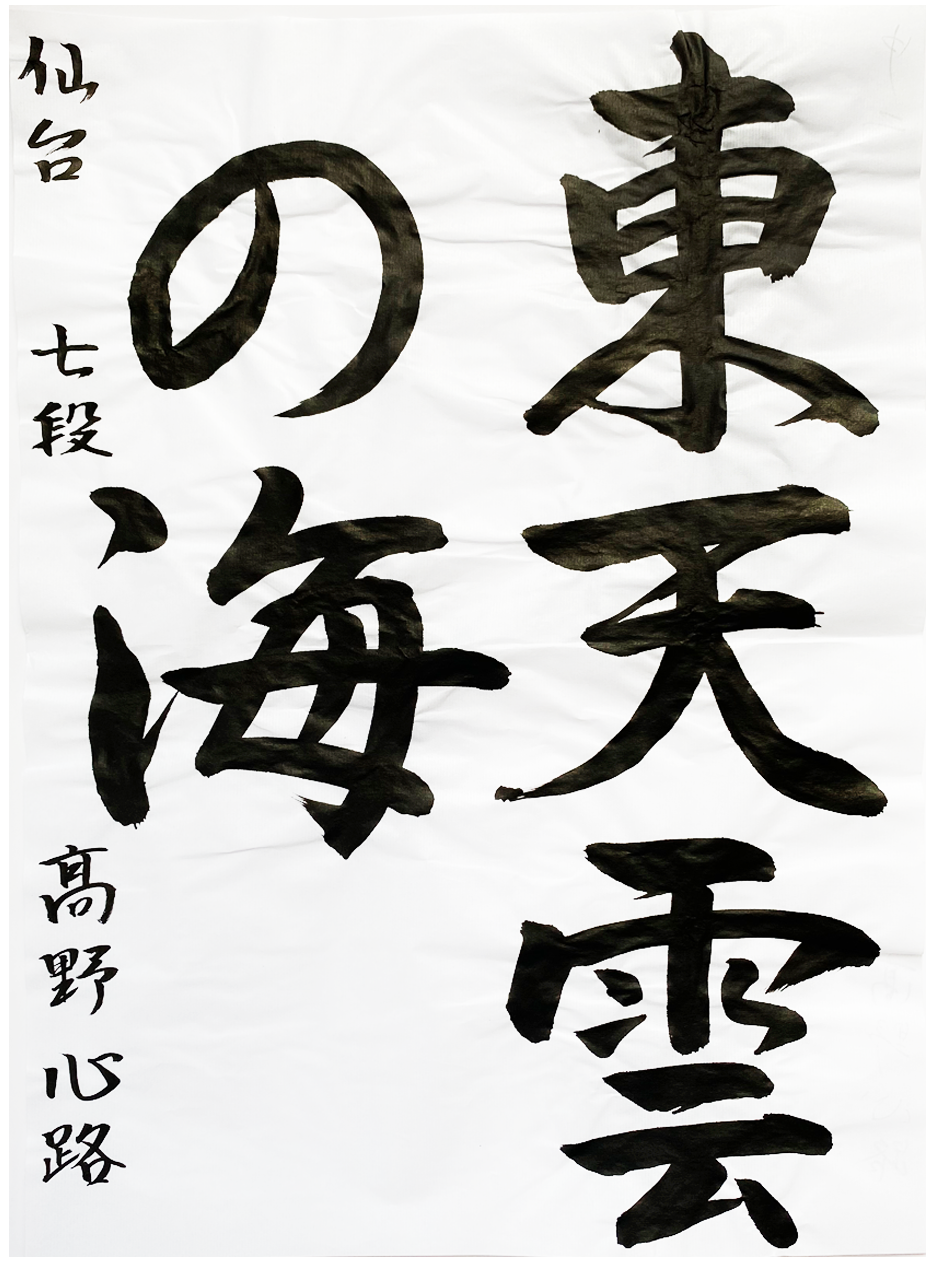 東天雲
の海
仙台 七段 髙野 心路